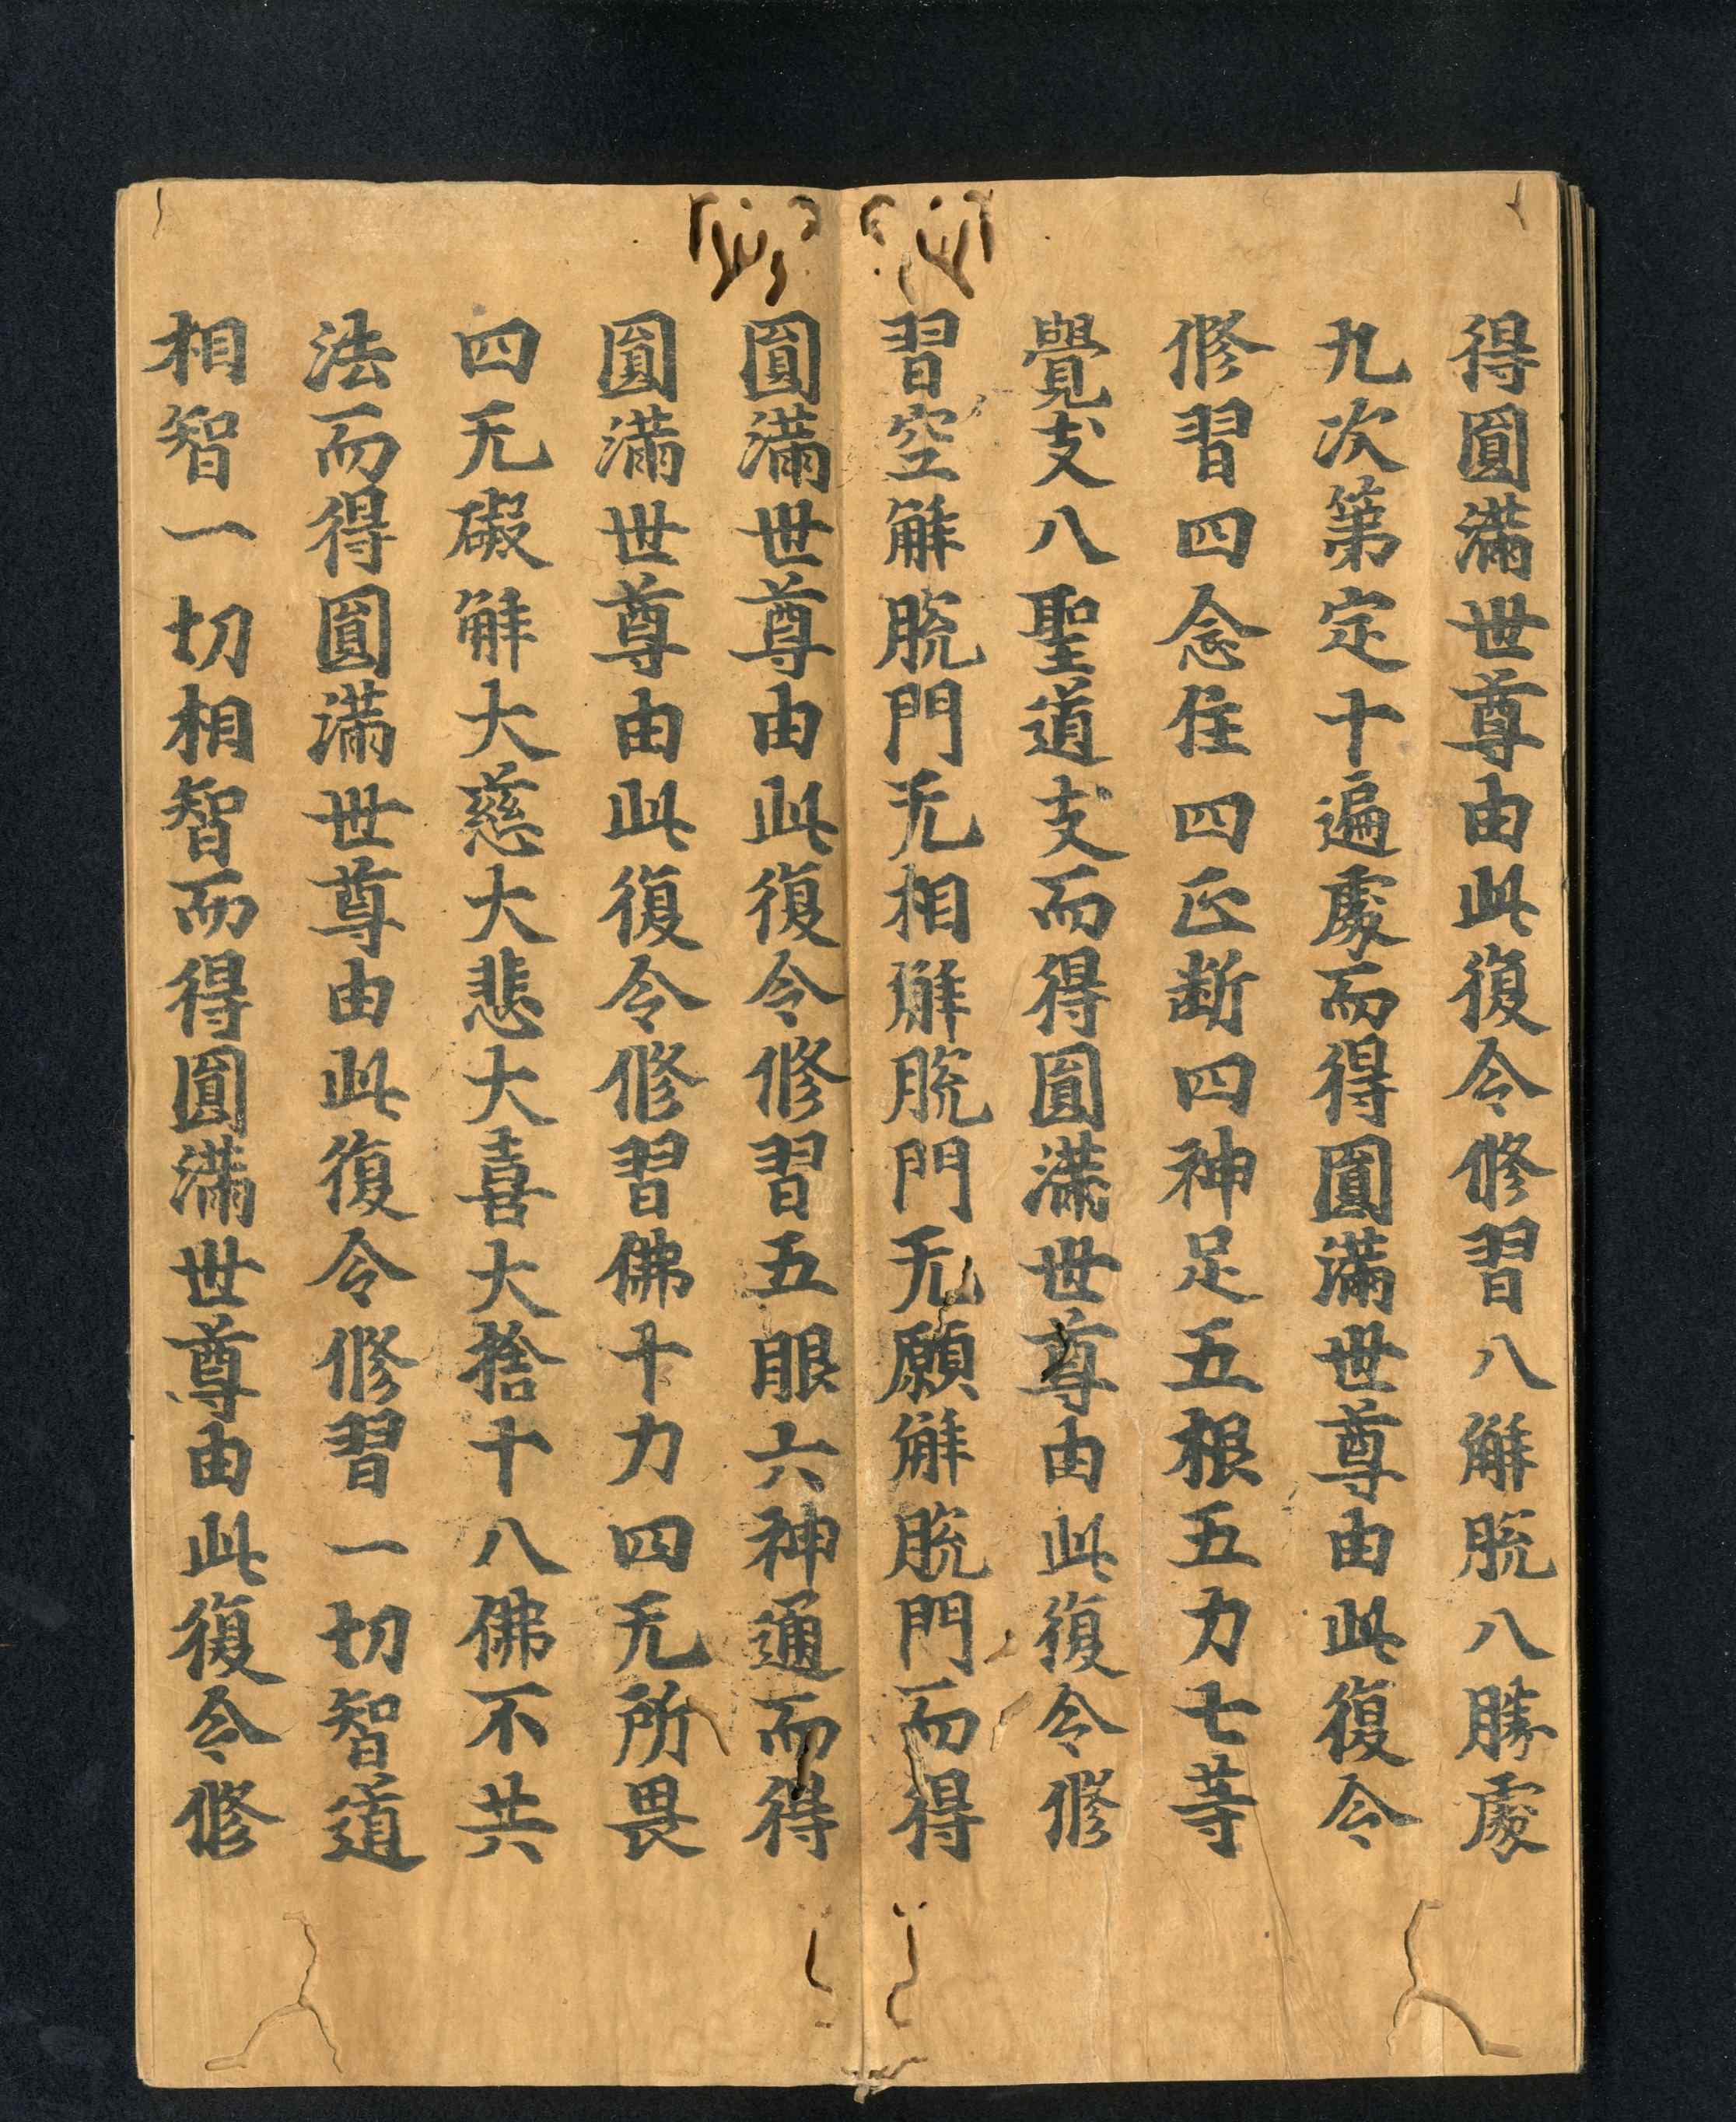 得圓滿世尊由此復令修習八解脫八勝處
九次第定十遍處而得圓滿世尊由此復令
修習四念住四正斷四神足五根五力七等
覺支八聖道支而得圓滿世尊由此復令修
習空解脫門无相解脫門无願解脫門而得
圓滿世尊由此復令修習五眼六神通而得
圓滿世尊由此復令修習佛十力四无所畏
四无礙解大慈大悲大喜大捨十八佛不共
法而得圓滿世尊由此復令修習一切智道
相智一切相智而得圓滿世尊由此復令修